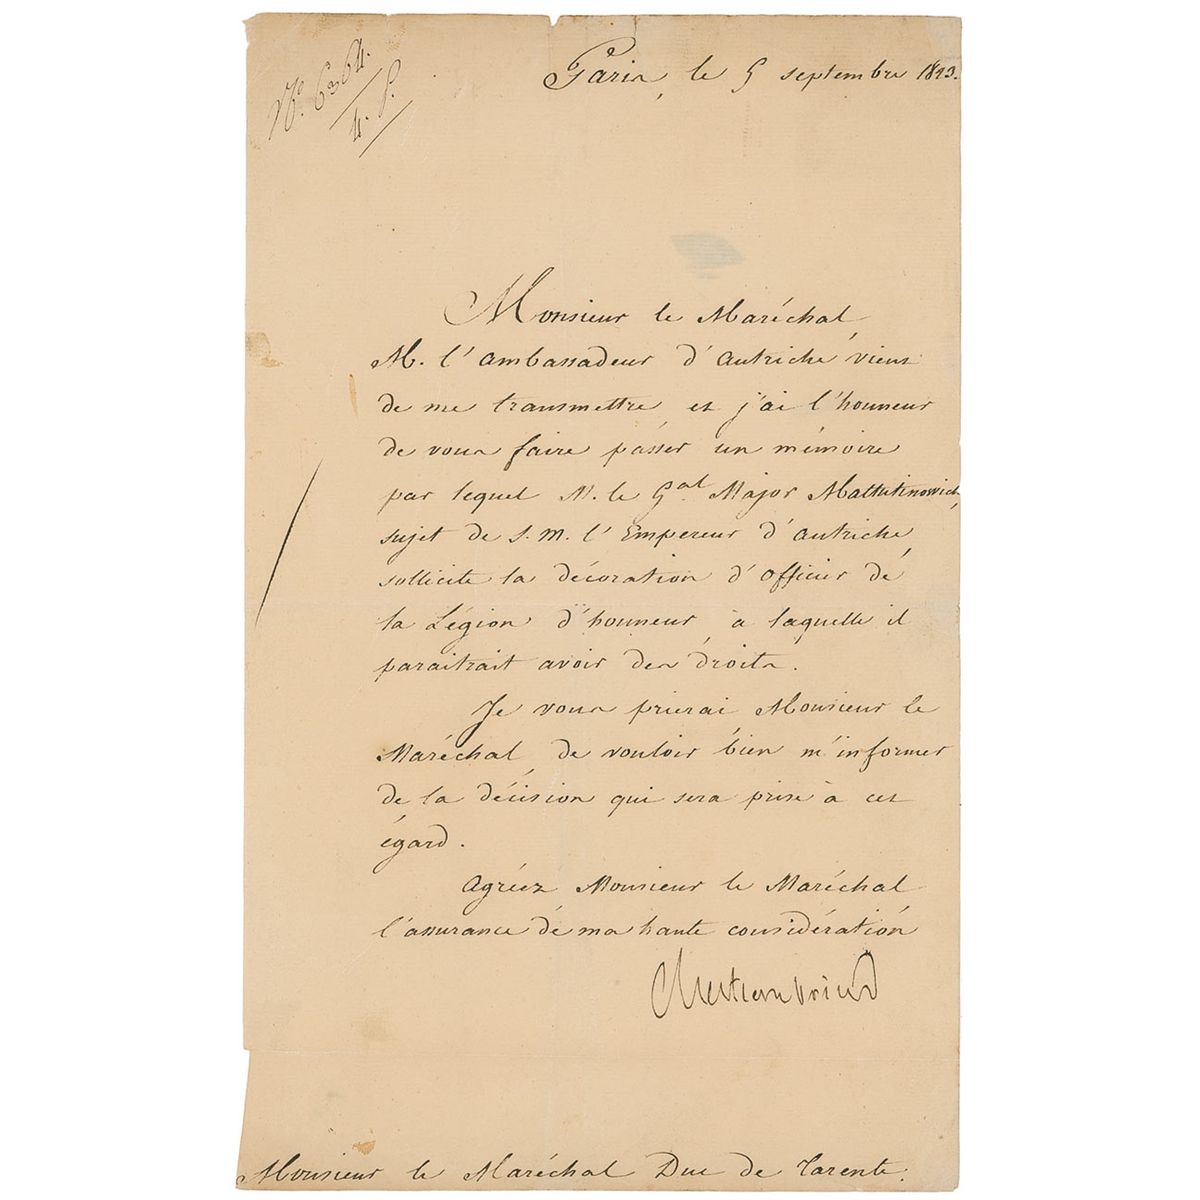 N.o 6364.
4. P.
Paris, le 5 septembre 1823.
Monsieur le Maréchal,
M. l'ambassadeur d'autriche vient
de me transmettre, et j'ai l'honneur
de vous faire passer un mémoire
par lequel M. le Gal Major Mattutinowich,
sujet de S. M. l'Empereur d'autriche
sollicite la décoration d'officier de
la Légion d'honneur, à laquelle il
paraitrait avoir des droits.
Je vous prierai Monsieur le
Maréchal, de vouloir bien m'informer
de la décision qui sera prise à cet
égard.
Agréez Monsieur le Maréchal
l'assurance de ma haute considération
Chateaubriand
Monsieur le Maréchal Duc de Tarente.